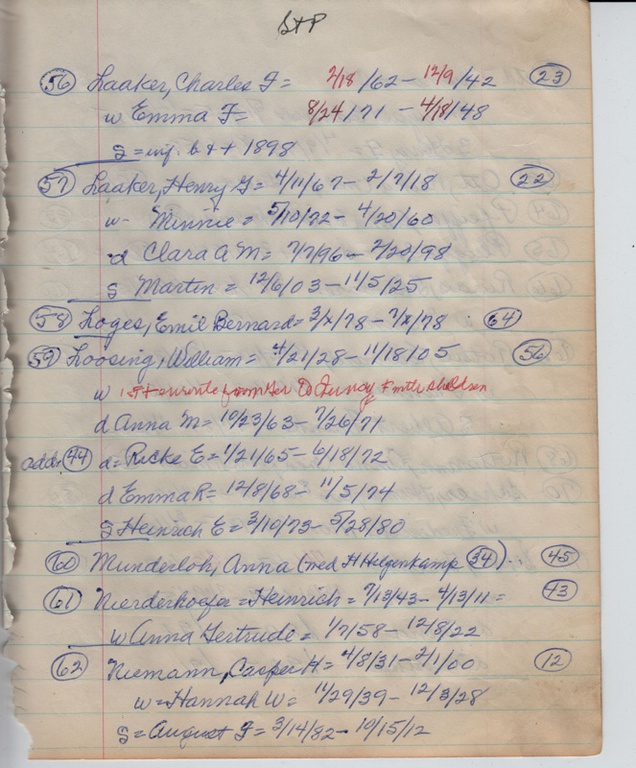 S+P
(56) Laaker, Charles F= 2/18/62 - 12/9/42 (23)
w Emma F= 8/24/71 - 4/18/48
s = inf. b + + 1898
(57) Laaker, Henry G= 4/11/67 - 2/7/18 (22)
w- Minnie = 5/10/72 - 4/20/60
d Clara A M= 7/7/96 - 2/20/98
s Martin = 12/6/03 - 11/5/25
(58) Loges, Emil Bernard= 3/x/78 - 7/x/78 (64)
(59) Loosing, William= 4/21/28 - 11/18/05 (56)
w 1st + enroute from Ger
d Anna M= 10/23/63 - 7/26/71
add: (44) d= Ricke E= 1/21/65 - 6/18/72
d Emma R= 12/8/68 - 11/5/74
s Heinrich E= 3/10/73 - 5/28/80
(60) Munderloh, Anna (med H Helgenkamp (34)).. (45)
(61) Nierderhoefer= Heinrich= 7/13/43 - 4/13/11= (43)
w Anna Gertrude= 1/7/58 - 12/8/22
(62) Niemann, Casper H= 4/8/31 - 2/1/00 (12)
w= Hannah W= 11/29/39 - 12/3/28
s= August F= 3/14/82 - 10/15/12